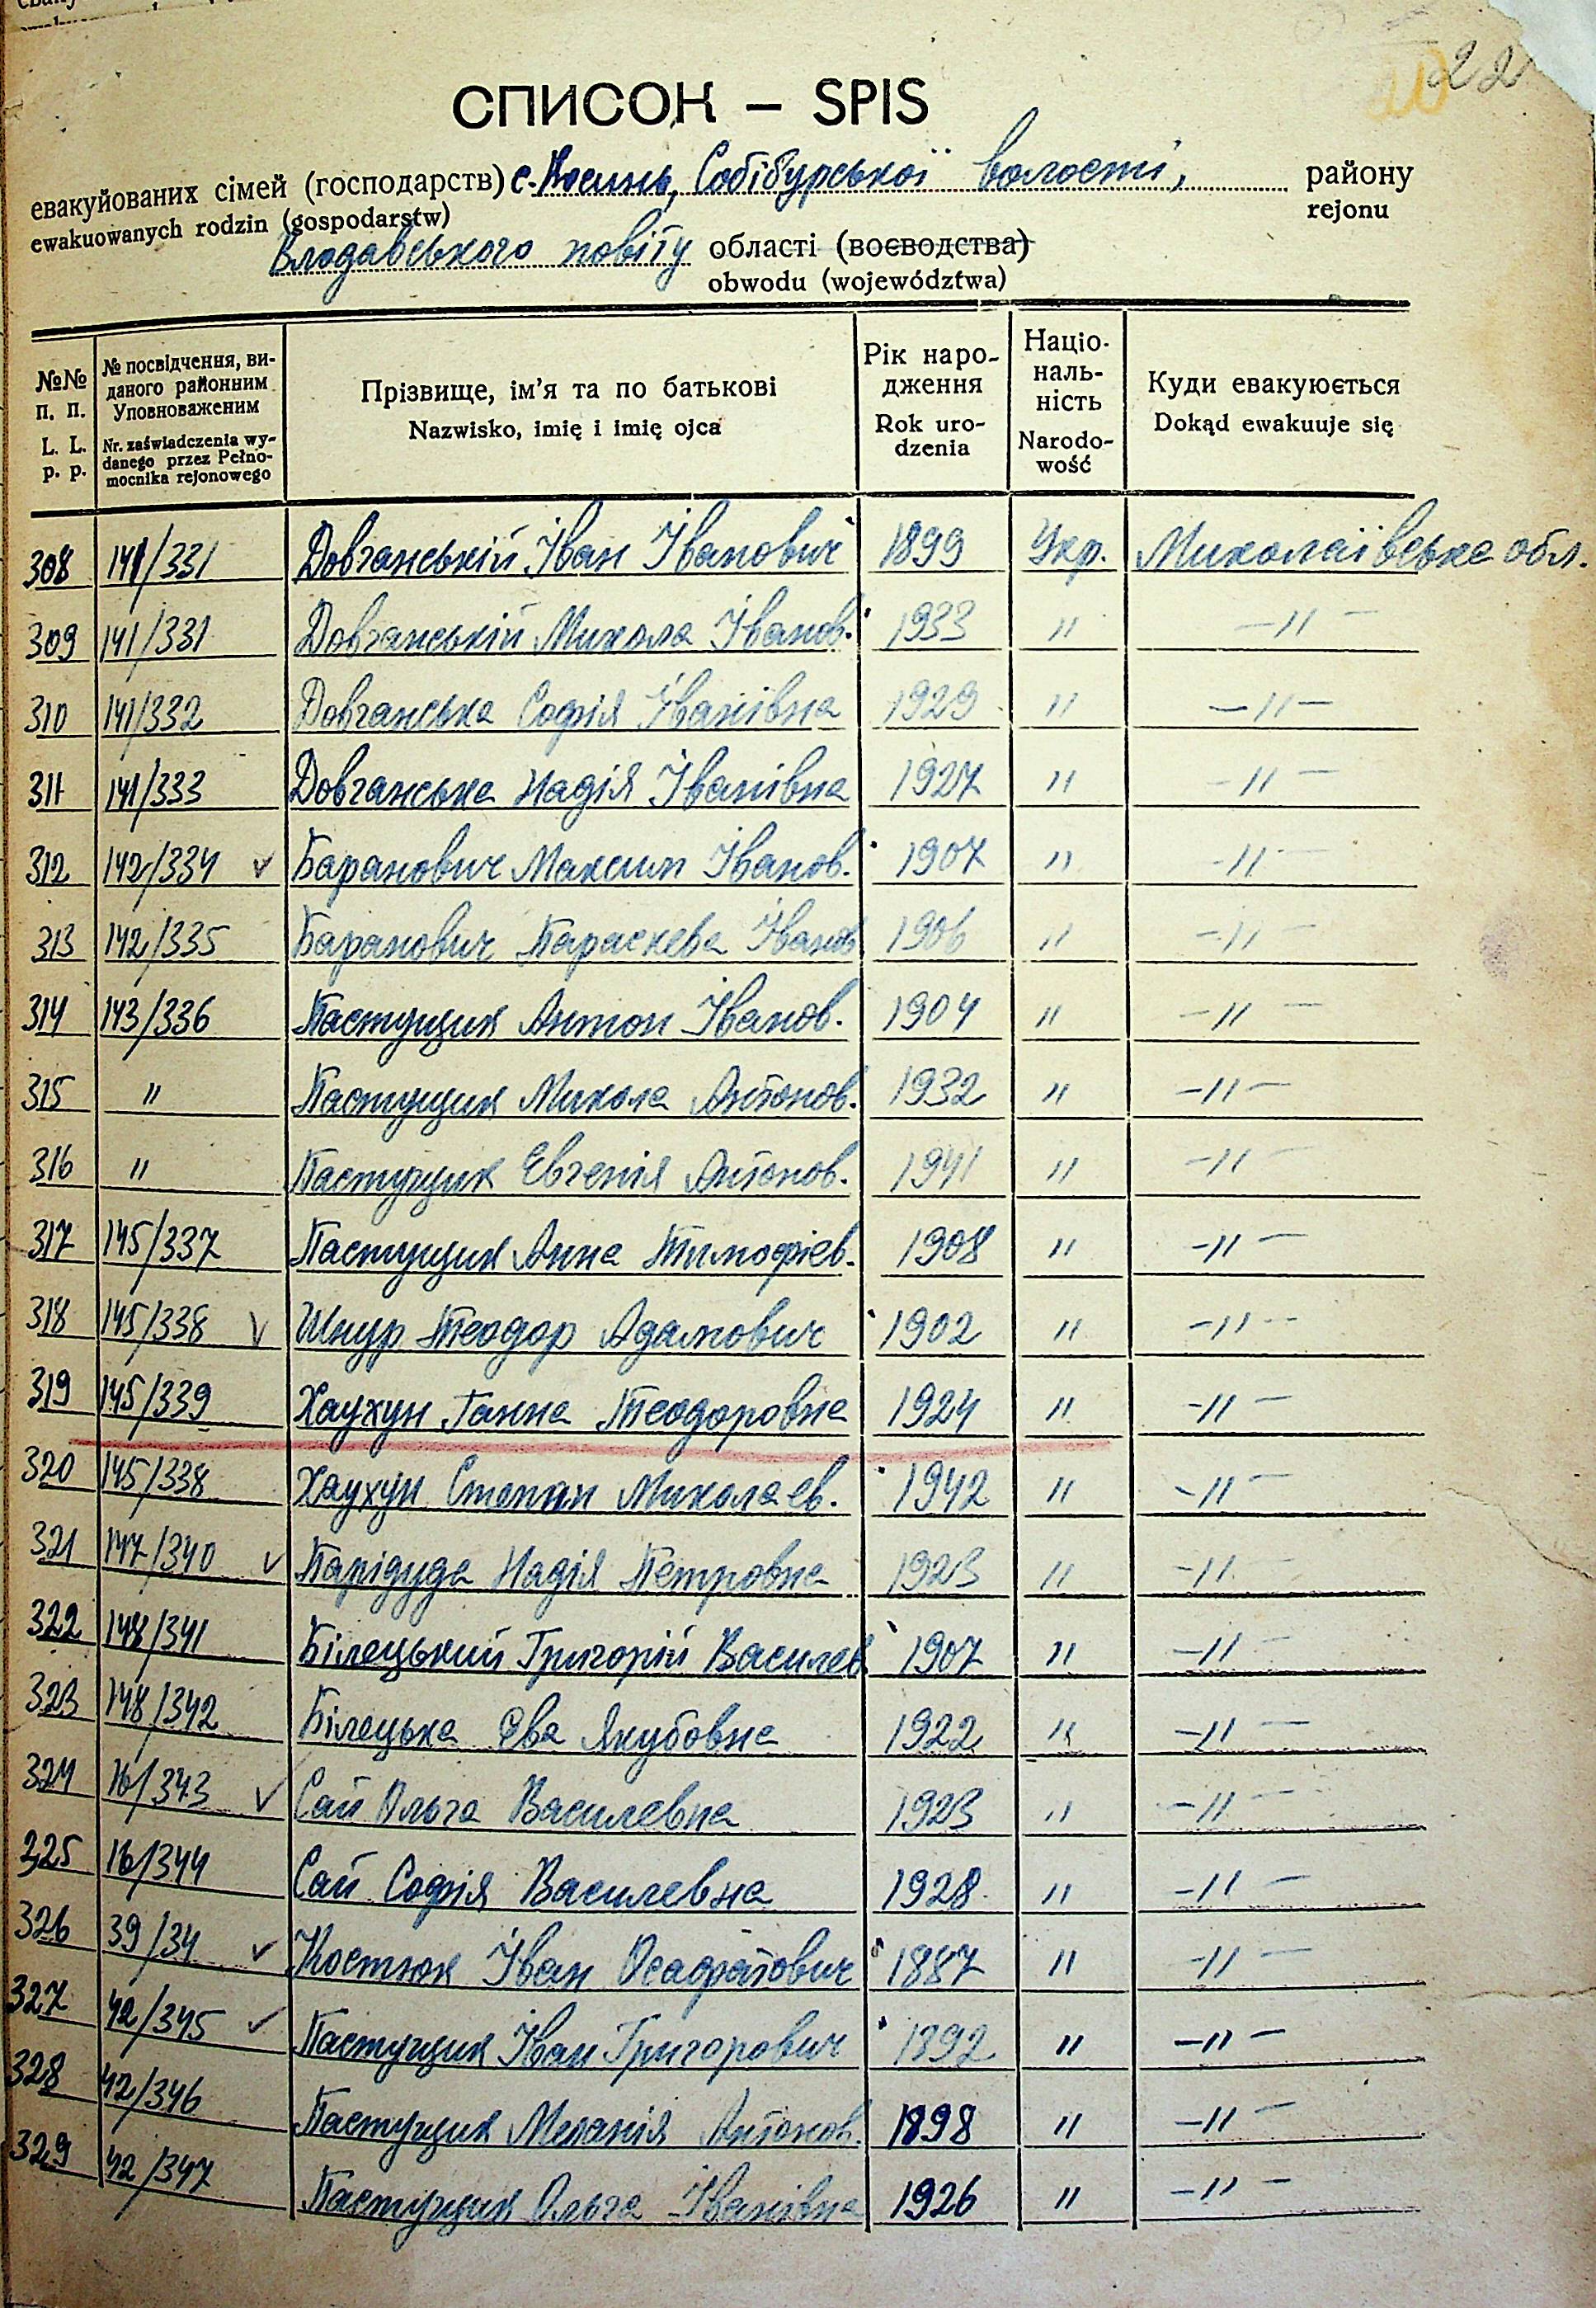 22
СПИСОК – SPIS
евакуйованих сімей (господарств) с. Косинь, Собібурської волості, району
ewakuowanych rodzin (gospodarstw) rejonu
Влодавського повіту області (воєводства)
obwodu (województwa)
№№ п. п. L. L. p. p.
№ посвідчення, виданого районним Уповноваженим Nr. zaświadczenia wydanego przez Pełnomocnika rejonowego
Прізвище, ім'я та по батькові Nazwisko, imię i imię ojca
Рік народження Rok urodzenia
Національність Narodowość
Куди евакуюється Dokąd ewakuuje się
308 141/331 Довганській Іван Іванович 1899 Укр. Миколаївська обл.
309 141/331 Довганській Микола Іванов. 1933 " -"-
310 141/332 Довганська Софія Іванівна 1929 " -"-
311 141/333 Довганська Надія Іванівна 1927 " -"-
312 142/334 ✓ Баранович Максим Іванов. 1907 " -"-
313 142/335 Баранович Параскева Іванов 1906 " -"-
314 143/336 Пастущик Антон Іванов. 1904 " -"-
315 " Пастущик Микола Антонов. 1932 " -"-
316 " Пастущик Евгенія Антонов. 1941 " -"-
317 145/337 Пастущик Анна Тимофіев. 1908 " -"-
318 145/338 ✓ Шнур Теодор Адамович 1902 " -"-
319 145/339 Хаухун Ганна Теодоровна 1924 " -"-
320 145/338 Хаухун Степан Миколаев. 1942 " -"-
321 147/340 ✓ Парідуда Надія Петровна 1923 " -"-
322 148/341 Білецький Григорій Василев 1907 " -"-
323 148/342 Білецька Єва Якубовна 1922 " -"-
324 16/343 ✓ Сай Ольга Василевна 1923 " -"-
325 16/344 Сай Софія Василевна 1928 " -"-
326 39/34 ✓ Костюк Іван Осафатович 1887 " -"-
327 42/345 ✓ Пастущик Іван Григорович 1892 " -"-
328 42/346 Пастущик Меланія Антонов. 1898 " -"-
329 42/347 Пастущик Ольга Іванівна 1926 " -"-